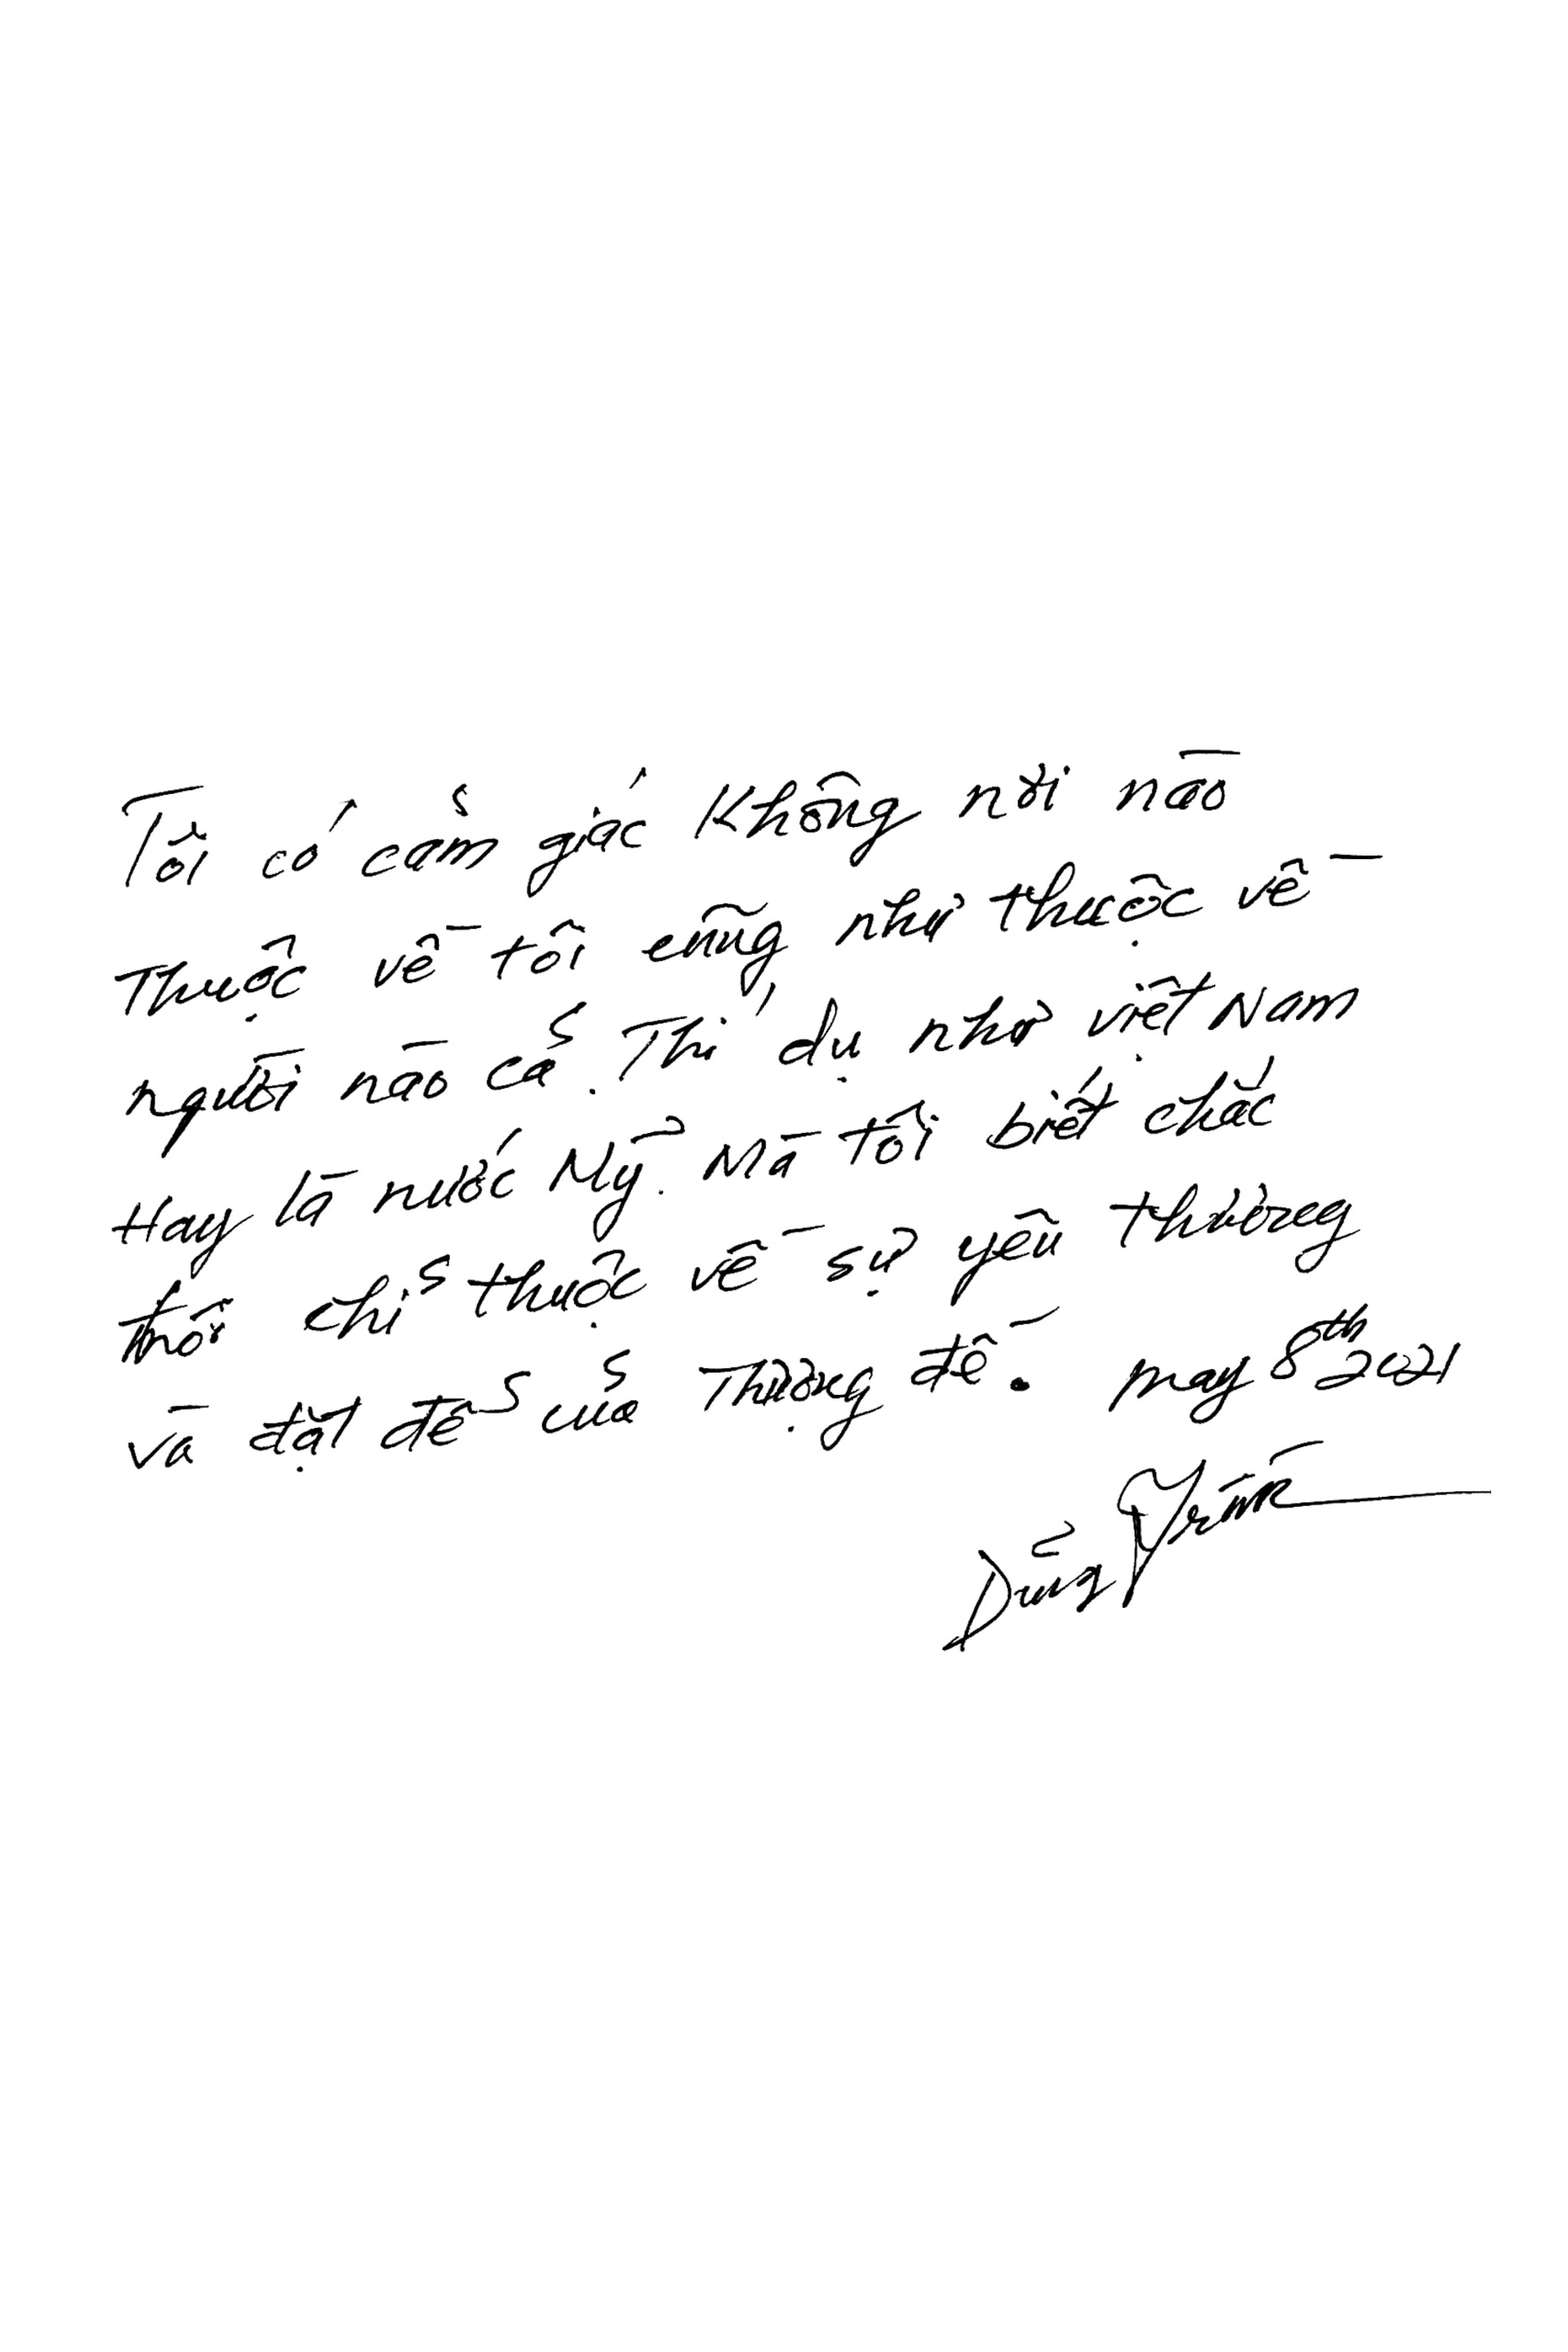 Tôi có cảm giác Không nơi nào
Thuộc về tôi cũng như thuộc về
người nào cả. Thí dụ như việt Nam
Hay là nước Mỹ. Mà tôi biết chắc
thôi chỉ thuộc về sự yêu thương
và đặt để của Thượng đế. may 8th 2021
Dũng Trinh